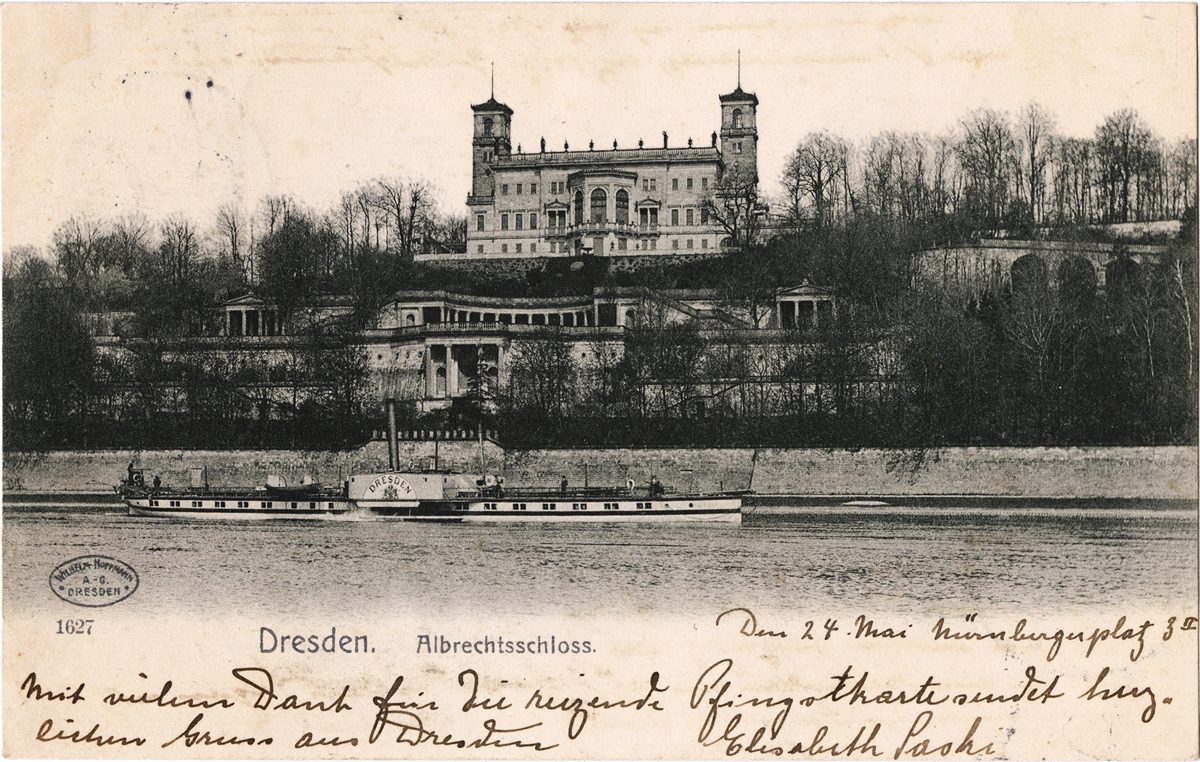 DRESDEN
WILHELM HOFFMANN
A.-G.
DRESDEN
1627
Dresden. Albrechtsschloss.
Den 24. Mai Nürnbergerplatz 3 II
Mit vielem Dank für die reizende Pfingstkarte sendet herz-
lichen Gruss aus Dresden
Elisabeth